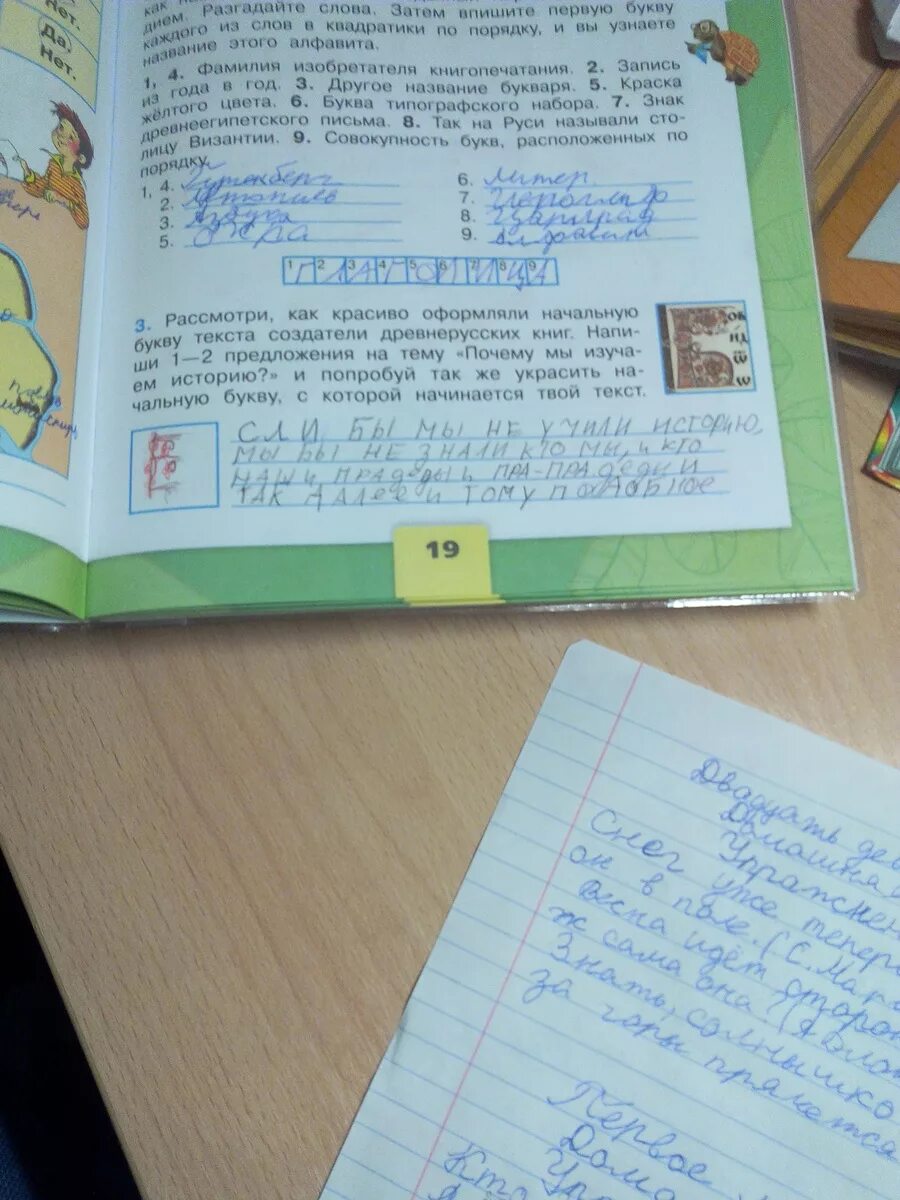 Нет.
Да.
Нет.
как
дием. Разгадайте слова. Затем впишите первую букву
каждого из слов в квадратики по порядку, и вы узнаете
название этого алфавита.
1, 4. Фамилия изобретателя книгопечатания. 2. Запись
из года в год. 3. Другое название букваря. 5. Краска
жёлтого цвета. 6. Буква типографского набора. 7. Знак
древнеегипетского письма. 8. Так на Руси называли сто-
лицу Византии. 9. Совокупность букв, расположенных по
порядку.
1, 4. Гутенберг
2. Летопись
3. Азбука
5. ОХРА
6. Литер
7. Иероглиф
8. Царьград
9. алфавит
1 Г 2 Л 3 А 4 Г 5 О 6 Л 7 И 8 Ц 9 А
3. Рассмотри, как красиво оформляли начальную
букву текста создатели древнерусских книг. Напи-
ши 1—2 предложения на тему «Почему мы изуча-
ем историю?» и попробуй так же украсить на-
чальную букву, с которой начинается твой текст.
Е СЛИ БЫ МЫ НЕ УЧИЛИ ИСТОРИЮ,
МЫ БЫ НЕ ЗНАЛИ КТО МЫ, И КТО
НАШИ ПРАДЕДЫ И ПРА-ПРАДЕДЫ И
ТАК ДАЛЕЕ И ТОМУ ПОДОБНОЕ
19
Двадцать де
Домашня
Упражнен
Снег уже тепер
он в поле. (С. Мар
Весна идёт сторон
ж сама она? (А. Бло
Знать, солнышко
за горы прячется
Первое
Дома
Упр
Кто